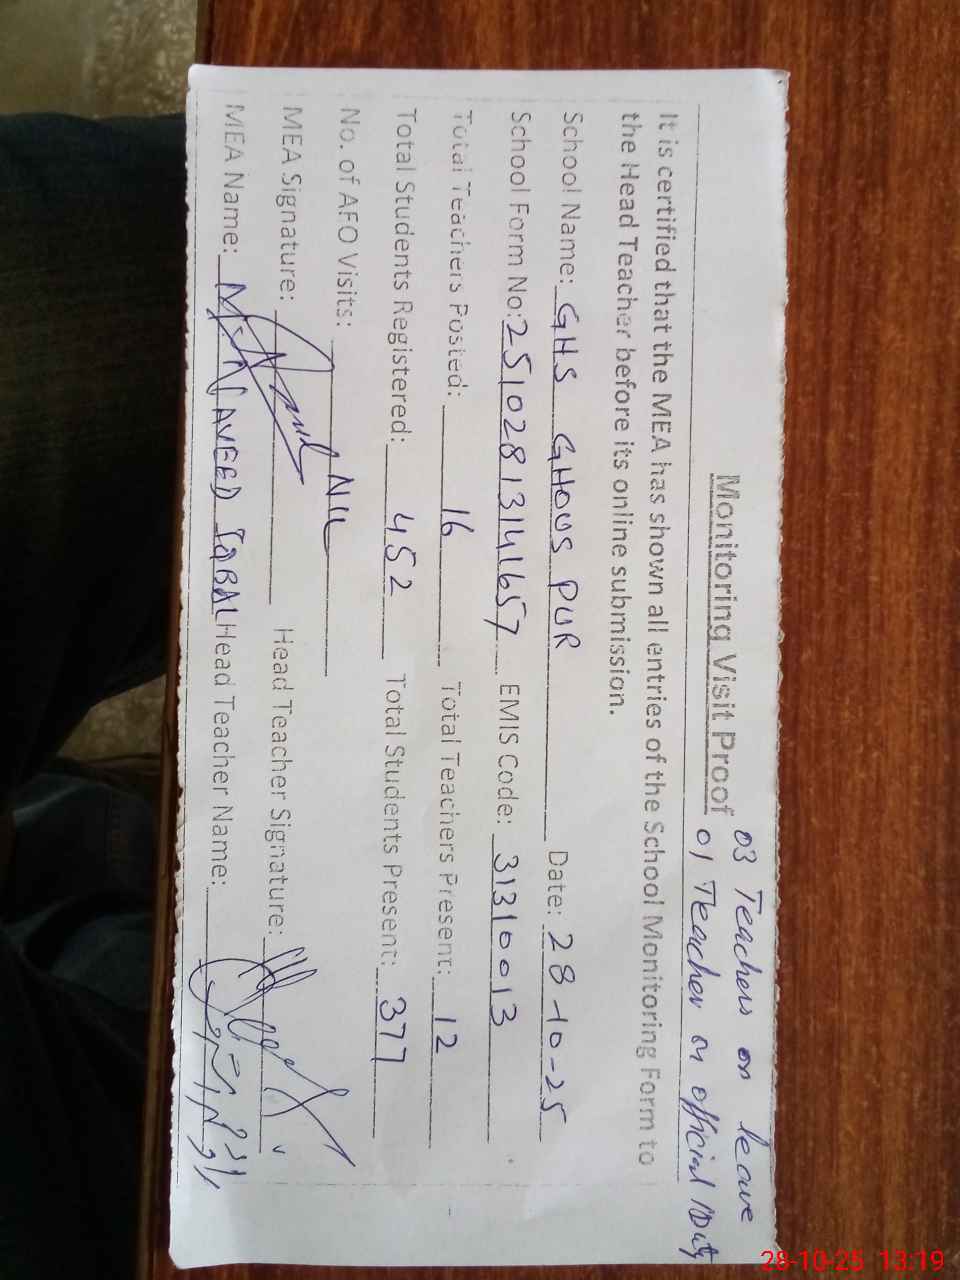 03 Teachers on leave
Monitoring Visit Proof 01 Teacher on official Duty
It is certified that the MEA has shown all entries of the School Monitoring Form to
the Head Teacher before its online submission.
School Name: GHS GHOUS PUR Date: 28-10-25
School Form No: 25102813141657 EMIS Code: 31310013
Total Teachers Posted: 16 Total Teachers Present: 12
Total Students Registered: 452 Total Students Present: 377
No. of AFO Visits: NIL
MEA Signature: Head Teacher Signature:
MEA Name: NAVEED IQBAL Head Teacher Name:
28-10-25 13:19